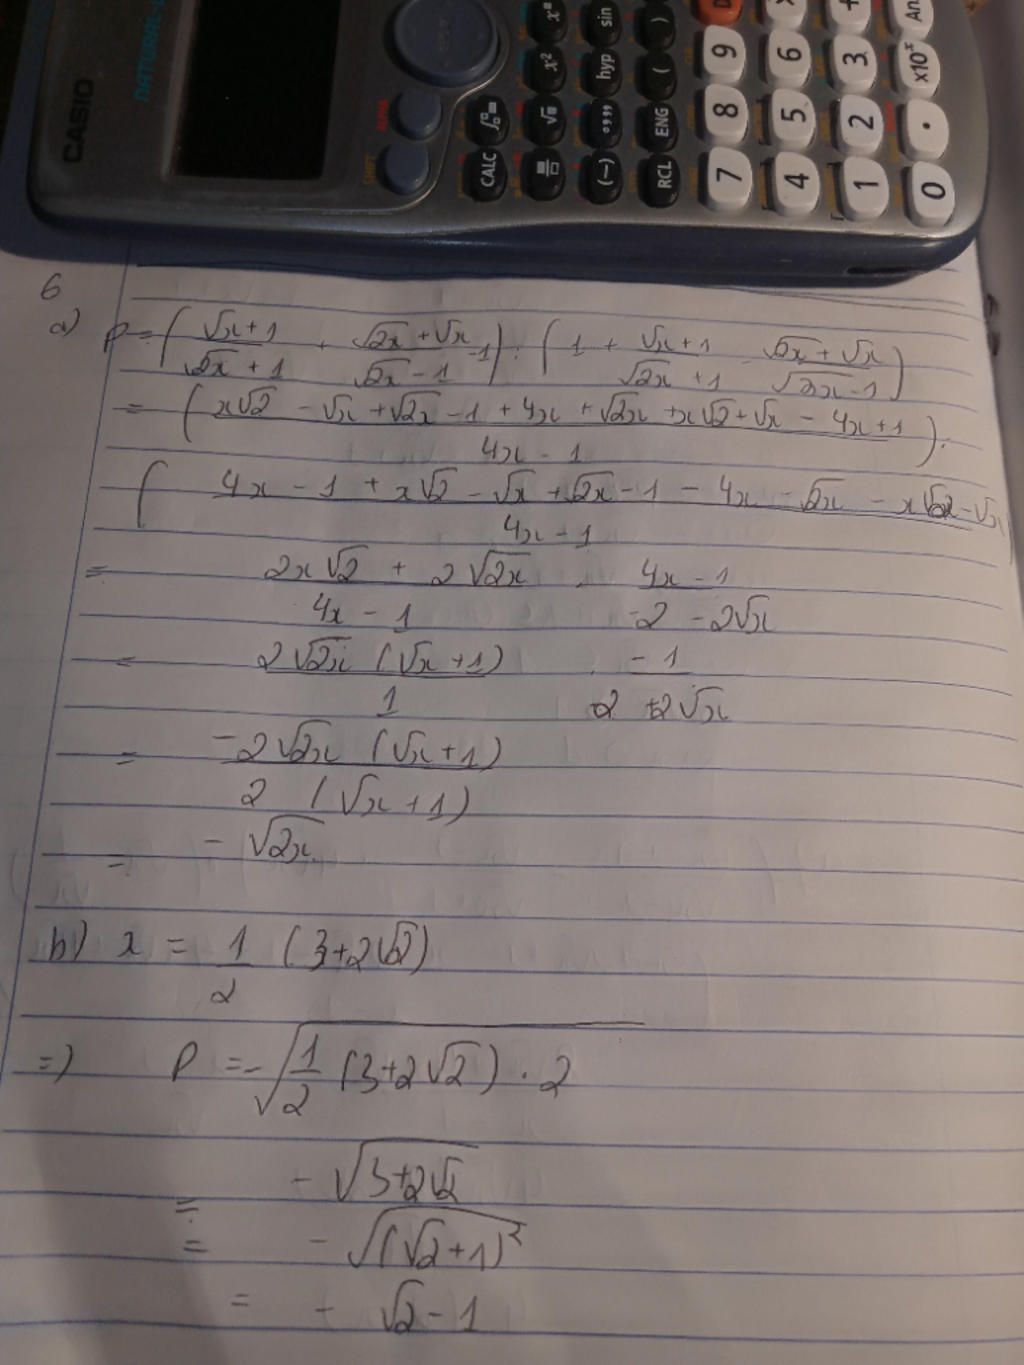 CASIO
NATURAL-
SHIFT ALPHA
CALC ∫ x² x■ √■
(−) °,,, hyp sin
RCL ENG ( )
7 8 9
4 5 6
1 2 3 +
0 . ×10ˣ An
6
a) P = ( (√x + 1)/(√2x + 1) + (√2x + √x)/(√2x - 1) - 1 ) : ( 1 + (√x + 1)/(√2x + 1) - (√2x + √x)/(√2x - 1) )
= ( (x√2 - √x + √2x - 1 + 4x + √2x + x√2 + √x - 4x + 1)/(4x - 1) ) :
( (4x - 1 + x√2 - √x + √2x - 1 - 4x - √2x - x√2 - √x)/(4x - 1)
= (2x√2 + 2√2x)/(4x - 1) . (4x - 1)/(-2 - 2√x)
= (2√2x (√x + 1))/1 (-1)/(2 + 2√x)
= (-2√2x (√x + 1))/(2 (√x + 1))
= - √2x
b) x = 1/2 (3 + 2√2)
=> P = -√(1/2 (3 + 2√2) . 2)
= - √(3 + 2√2)
= - √((√2 + 1)²)
= - √2 - 1